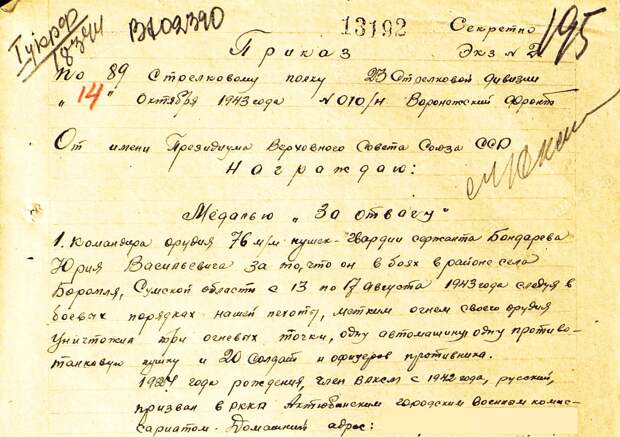 13192 Секретно
ВА02390 Экз N 2 195
183чч
Приказ
По 89 Стрелковому полку 23 Стрелковой дивизии
„ 14 " Октября 1943 года N 010/н Воронежский Фронт
От имени Президиума Верховного Совета Союза ССР
Награждаю:
Медалью „За отвагу"
1. Командира орудия 76 м/м пушек - гвардии сержанта Бондарева
Юрия Васильевича за то, что он в боях в районе села
Боромля, Сумской области с 13 по 17 августа 1943 года следуя в
боевых порядках нашей пехоты, метким огнем своего орудия
уничтожил три огневых точки, одну автомашину, одну противо-
танковую пушку и 20 солдат и офицеров противника.
1924 года рождения, член ВЛКСМ с 1942 года, русский,
призван в РККА Актюбинским городским военным комис-
сариатом. Домашний адрес: